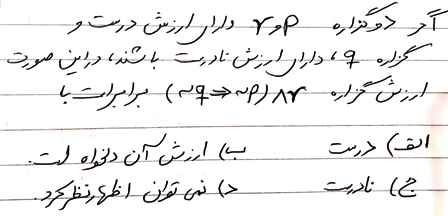 اگر دو گزاره p و r دارای ارزش درست و
گزاره q، دارای ارزش نادرست باشند، در این صورت
ارزش گزاره (~q ⇒ ~p) ∧ r برابر است با
الف) درست ب) ارزش آن دلخواه است.
ج) نادرست د) نمی توان اظهار نظر کرد.